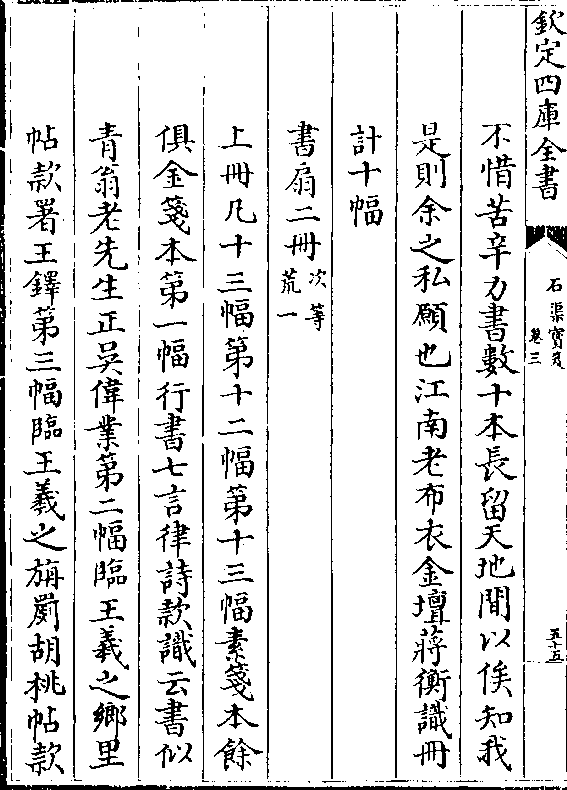 欽定四庫全書
石渠寶笈
卷三
五十五
不惜苦辛力書數十本長留天地間以俟知我
是則余之私願也江南老布衣金壇蔣衡識冊
計十幅
書扇二冊次等荒一
上冊凡十三幅第十二幅第十三幅素箋本餘
俱金箋本第一幅行書七言律詩款識云書似
青翁老先生正吳偉業第二幅臨王羲之鄉里
帖款署王鐸第三幅臨王羲之旃罽胡桃帖款